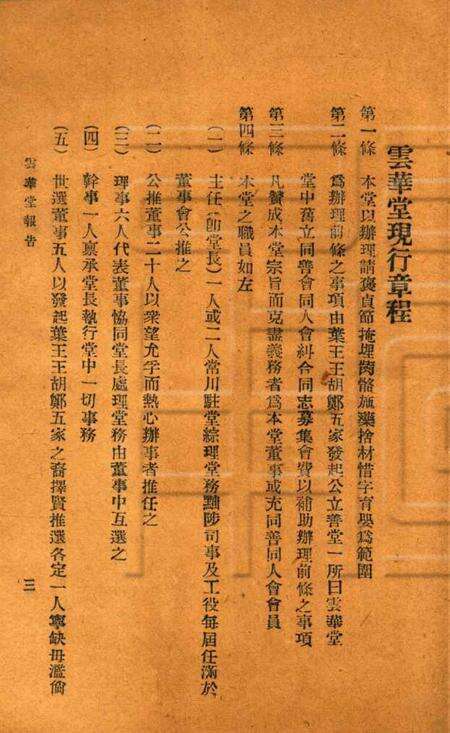 雲華堂現行章程
第一條　本堂以辦理請褒貞節掩埋胔骼施藥捨材惜字育嬰爲範圍
第二條　爲辦理前條之事項由葉王王胡鄭五家發起公立善堂一所曰雲華堂
堂中舊立同善會同人會糾合同志募集會費以補助辦理前條之事項
第三條　凡贊成本堂宗旨而克盡義務者爲本堂董事或充同善同人會會員
第四條　本堂之職員如左
（一）　主任（卽堂長）一人或二人常川駐堂綜理堂務黜陟司事及工役每屆任滿於
董事會公推之
（二）　公推董事二十人以衆望允孚而熱心辦事者推任之
（三）　理事六人代表董事協同堂長處理堂務由董事中互選之
（四）　幹事一人稟承堂長執行堂中一切事務
（五）　世選董事五人以發起葉王王胡鄭五家之裔擇賢推選各定一人寧缺毋濫倘
雲華堂報告
三